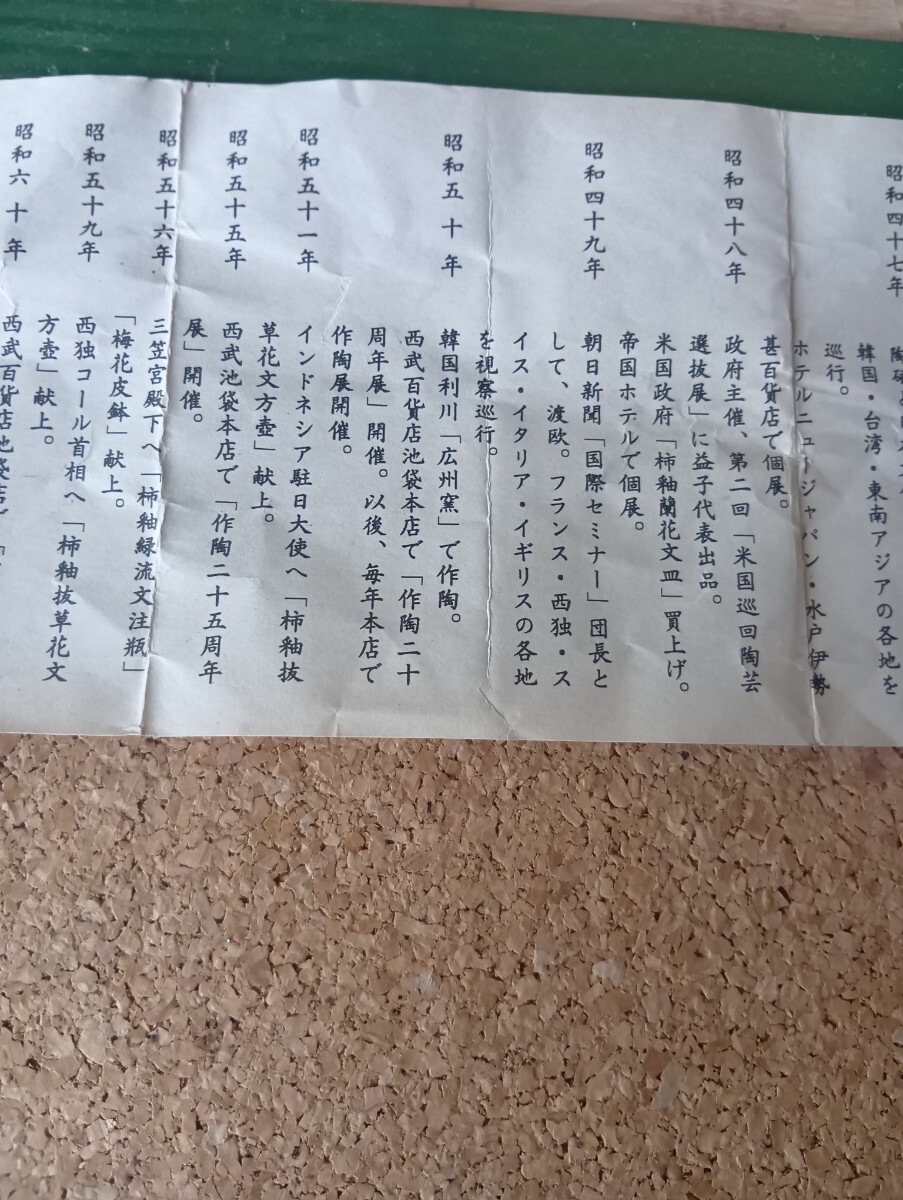 昭和四十七年
韓国・台湾・東南アジアの各地を
巡行。
ホテルニュージャパン・水戸伊勢
甚百貨店で個展。
昭和四十八年
政府主催、第二回「米国巡回陶芸
選抜展」に益子代表出品。
米国政府「柿釉蘭花文皿」買上げ。
帝国ホテルで個展。
昭和四十九年
朝日新聞「国際セミナー」団長と
して、渡欧。フランス・西独・ス
イス・イタリア・イギリスの各地
を視察巡行。
昭和五十年
韓国利川「広州窯」で作陶。
西武百貨店池袋本店で「作陶二十
周年展」開催。以後、毎年本店で
作陶展開催。
昭和五十一年
インドネシア駐日大使へ「柿釉抜
草花文方壺」献上。
昭和五十五年
西武池袋本店で「作陶二十五周年
展」開催。
昭和五十六年
三笠宮殿下へ「柿釉緑流文注瓶」
「梅花皮鉢」献上。
昭和五十九年
西独コール首相へ「柿釉抜草花文
方壺」献上。
昭和六十年
西武百貨店池袋店で「